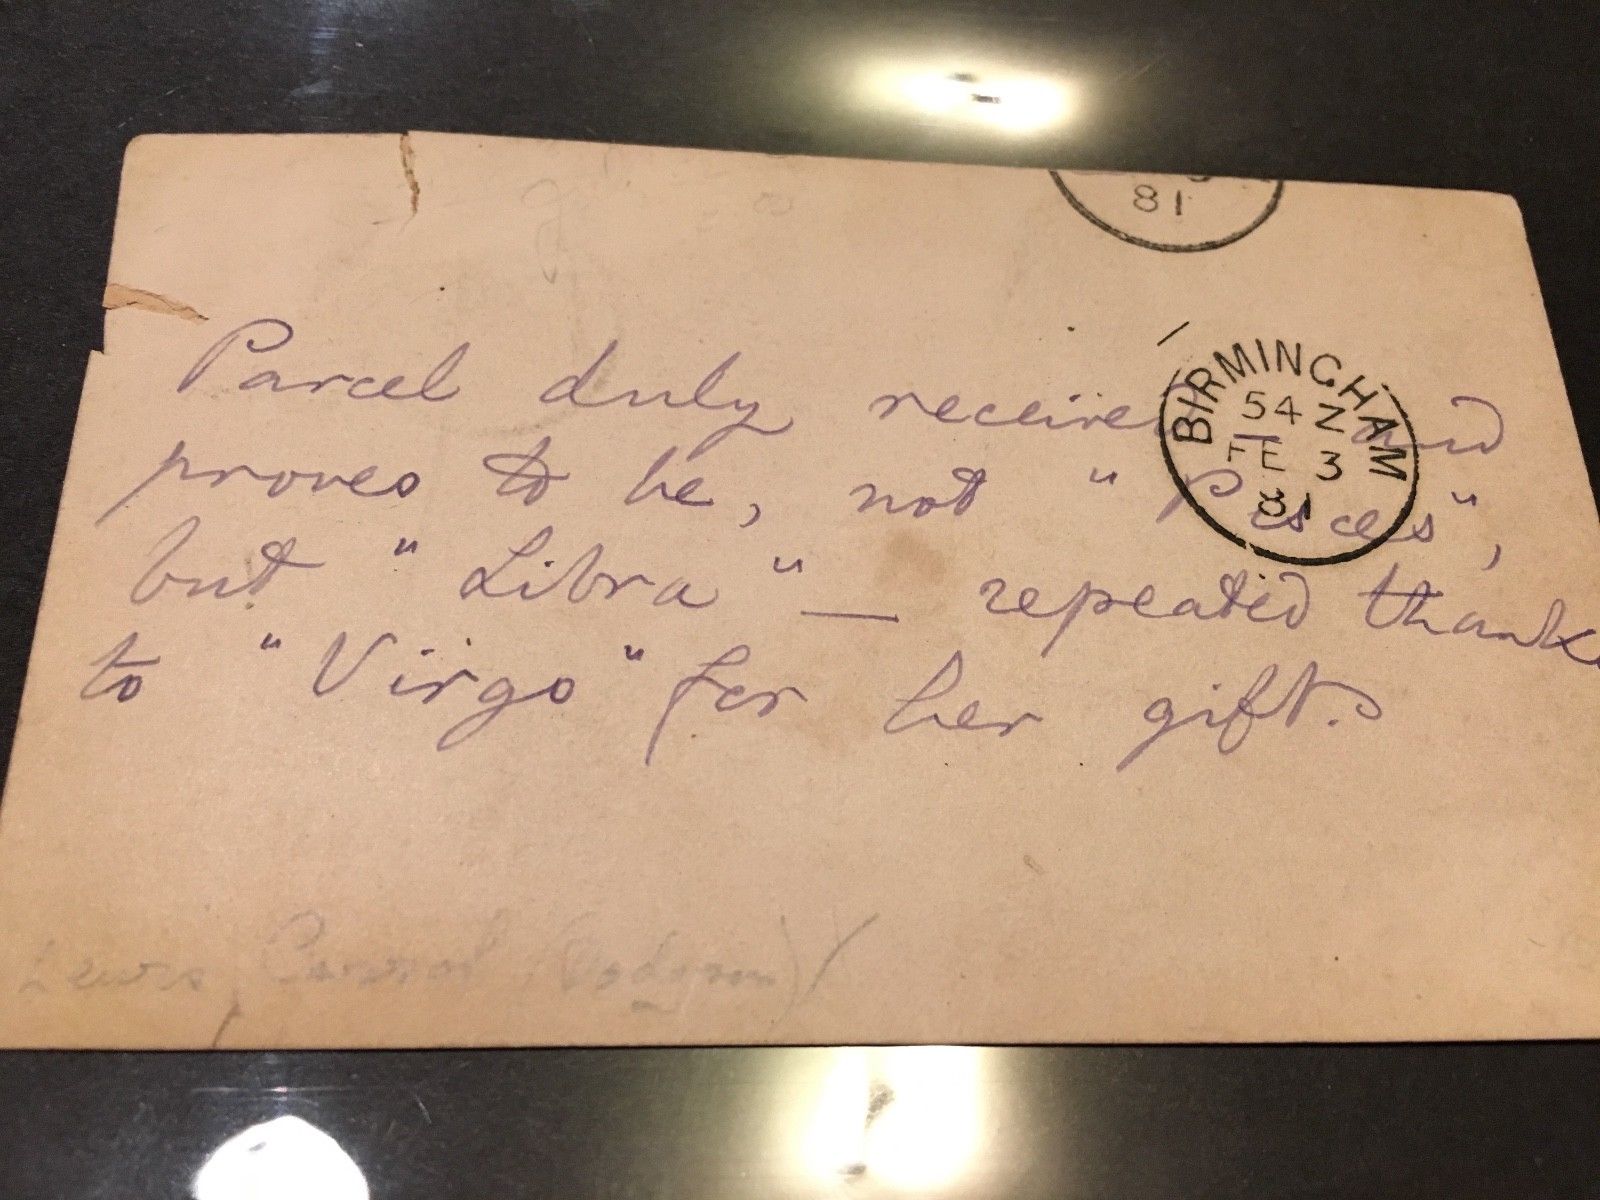 81
BIRMINGHAM
54 Z
FE 3
81
Parcel duly received and
proves to be, not "Pisces",
but "Libra" — repeated thanks
to "Virgo" for her gift.
Lewis Carrol (Dodgson)